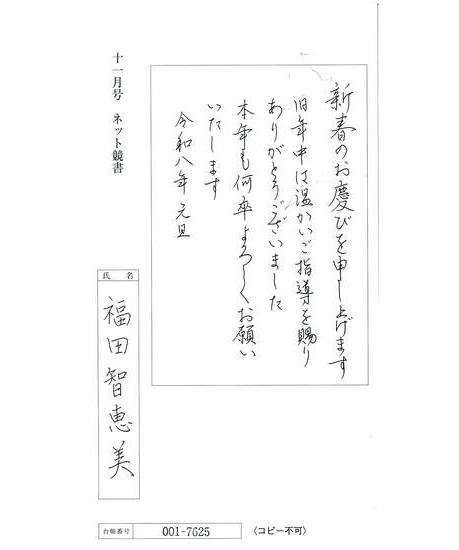 新春のお慶びを申し上げます
旧年中は温かいご指導を賜り
ありがとうございました
本年も何卒よろしくお願い
いたします
令和八年 元旦
十一月号 ネット競書
氏名
福田智恵美
台帳番号
001-7625
〈コピー不可〉